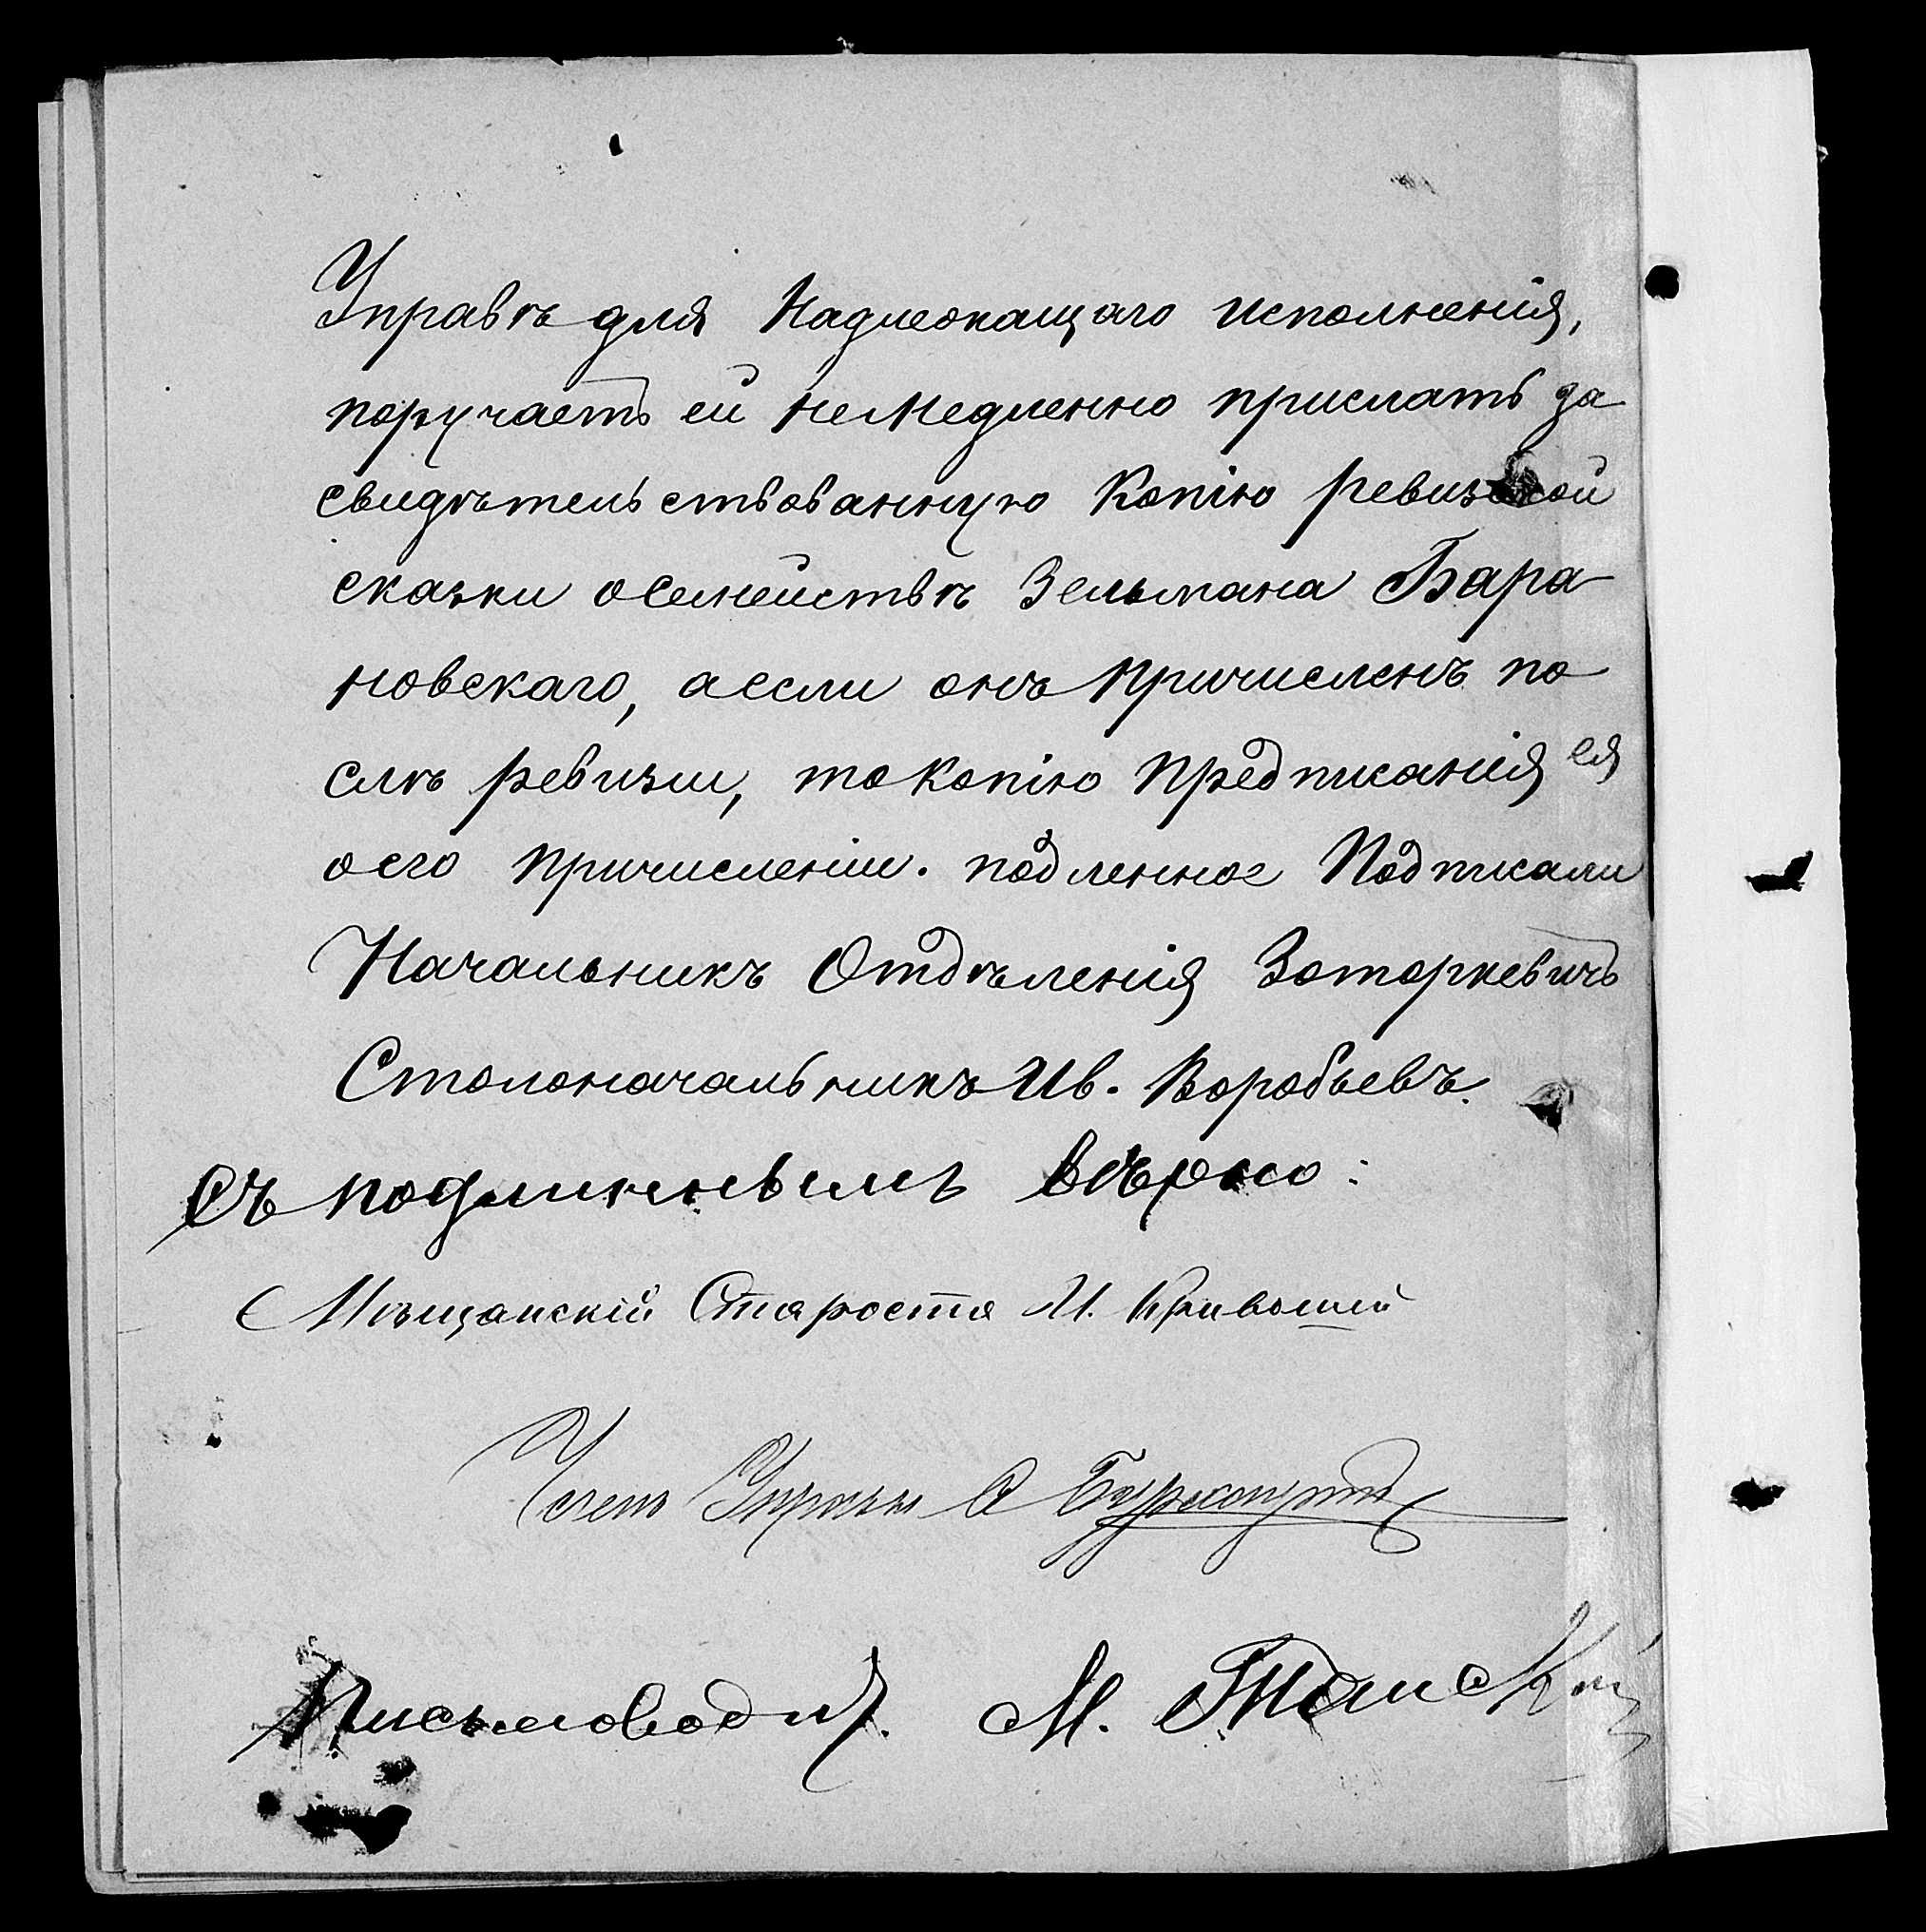 Управѣ для надлежащаго исполненія,
поручаетъ ей немедленно прислать за
свидѣтельствованную копію ревизской
сказки о семействѣ Зельмана Бара
новскаго, а если онъ причисленъ по
слѣ ревизіи, то копію предписанія ея
о его причисленіи. подленное Подписали
Начальникъ Отдѣленія Заторкевичъ
Столоначальникъ Ив. Воробьевъ.
Съ подлиннымъ вѣрно:
Мѣщанскій Староста И. Кривошей
Членъ Управы
Письмоводит. М.